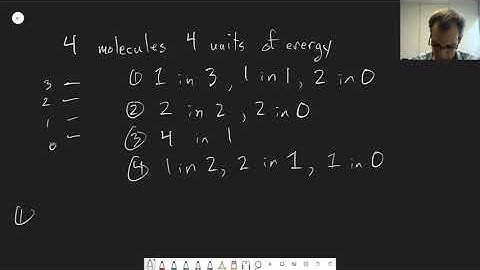 4 molecules 4 units of energy
3 —
2 —
1 —
0 —
① 1 in 3, 1 in 1, 2 in 0
② 2 in 2, 2 in 0
③ 4 in 1
④ 1 in 2, 2 in 1, 1 in 0
①